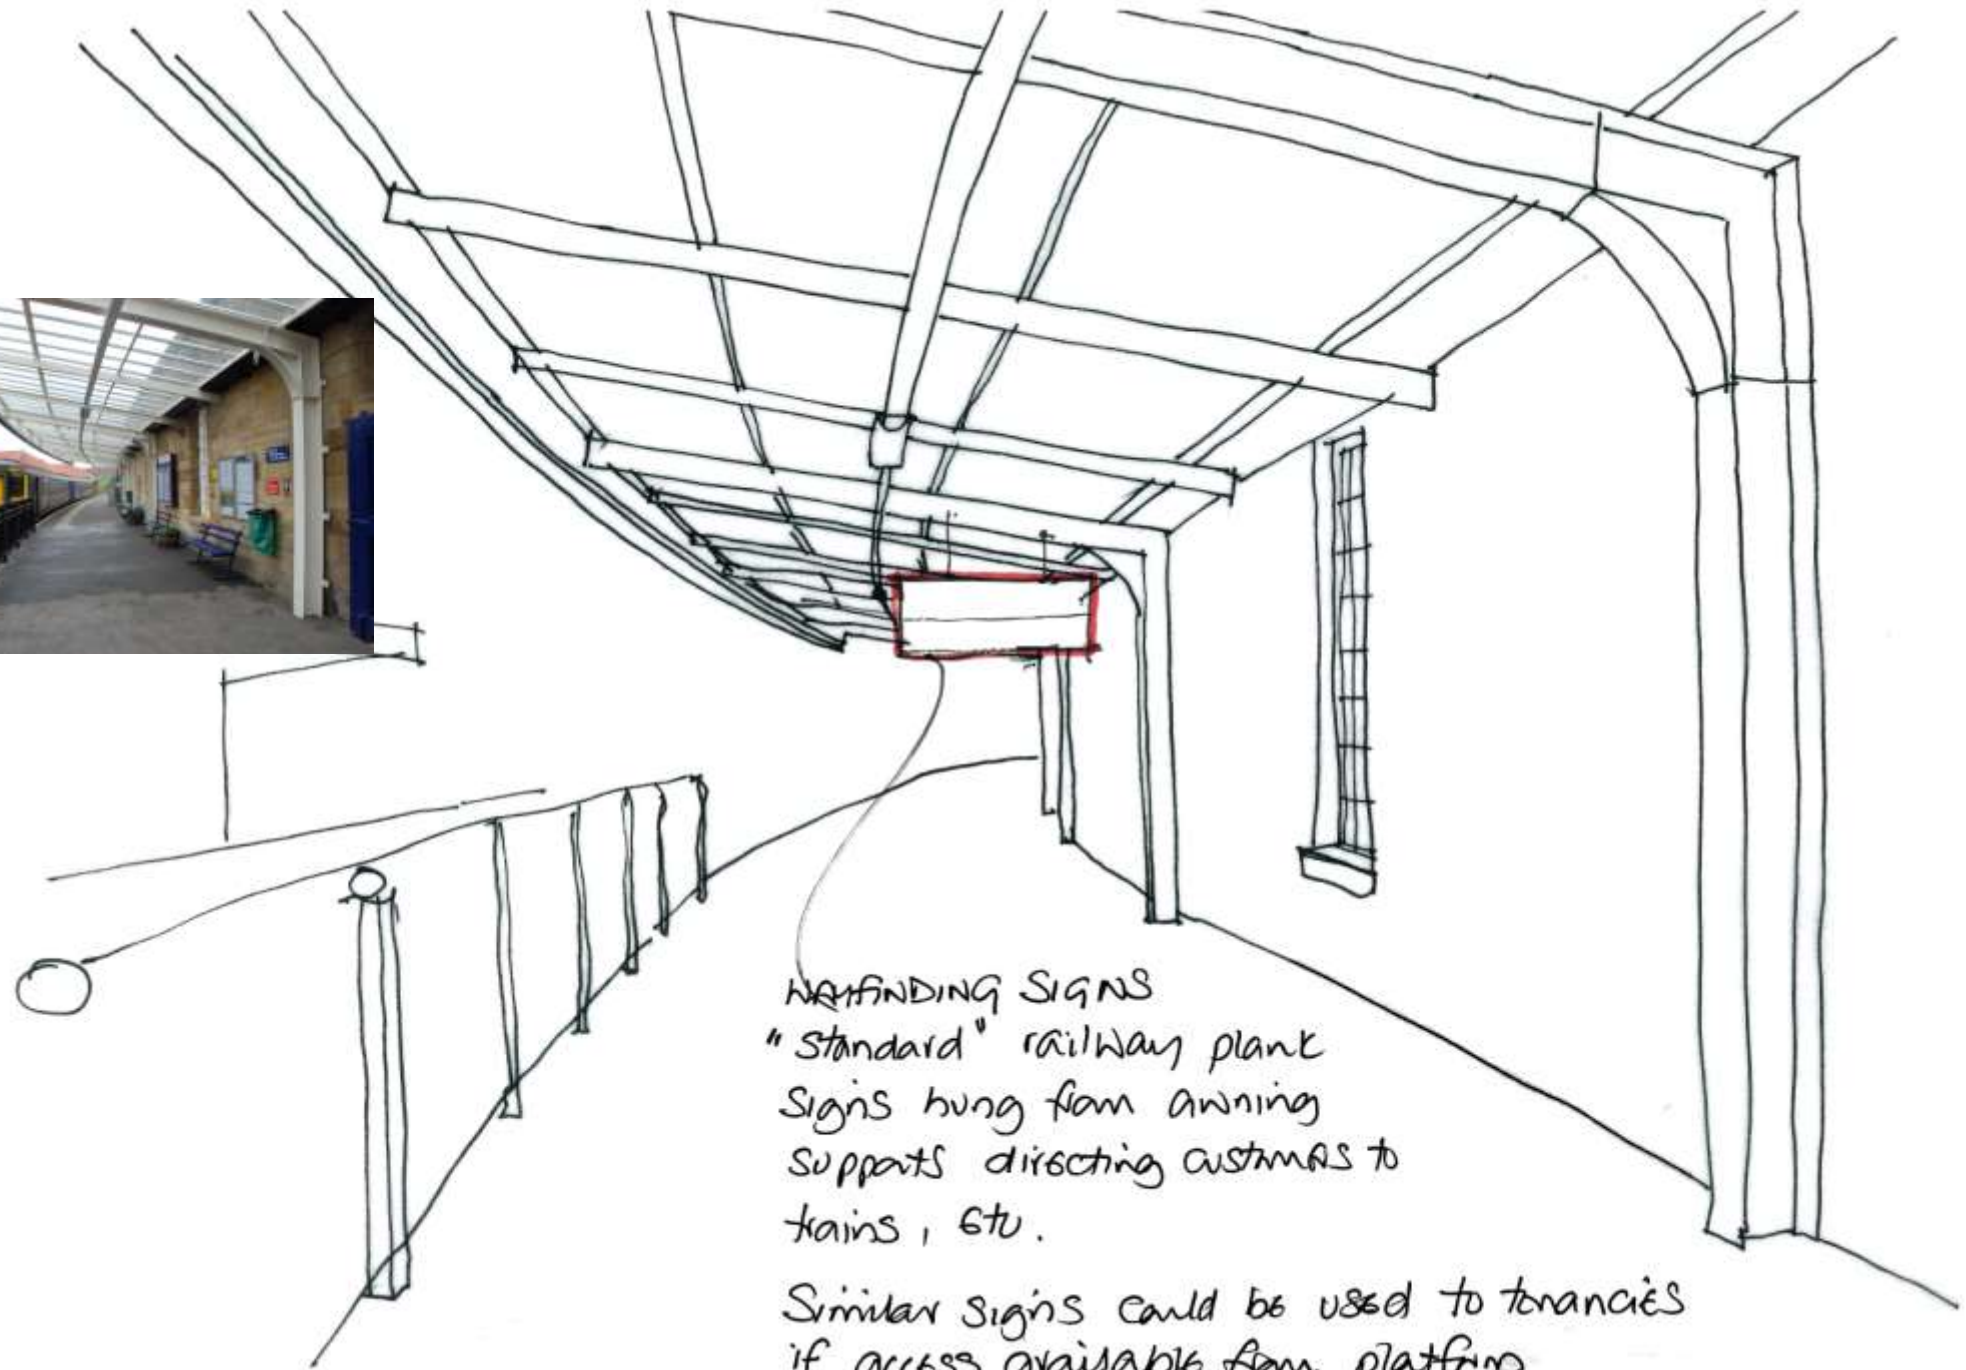 WAYFINDING SIGNS
"Standard" railway plank
signs hung from awning
supports directing customers to
trains, etc.
Similar signs could be used to tenancies
if access available from platform